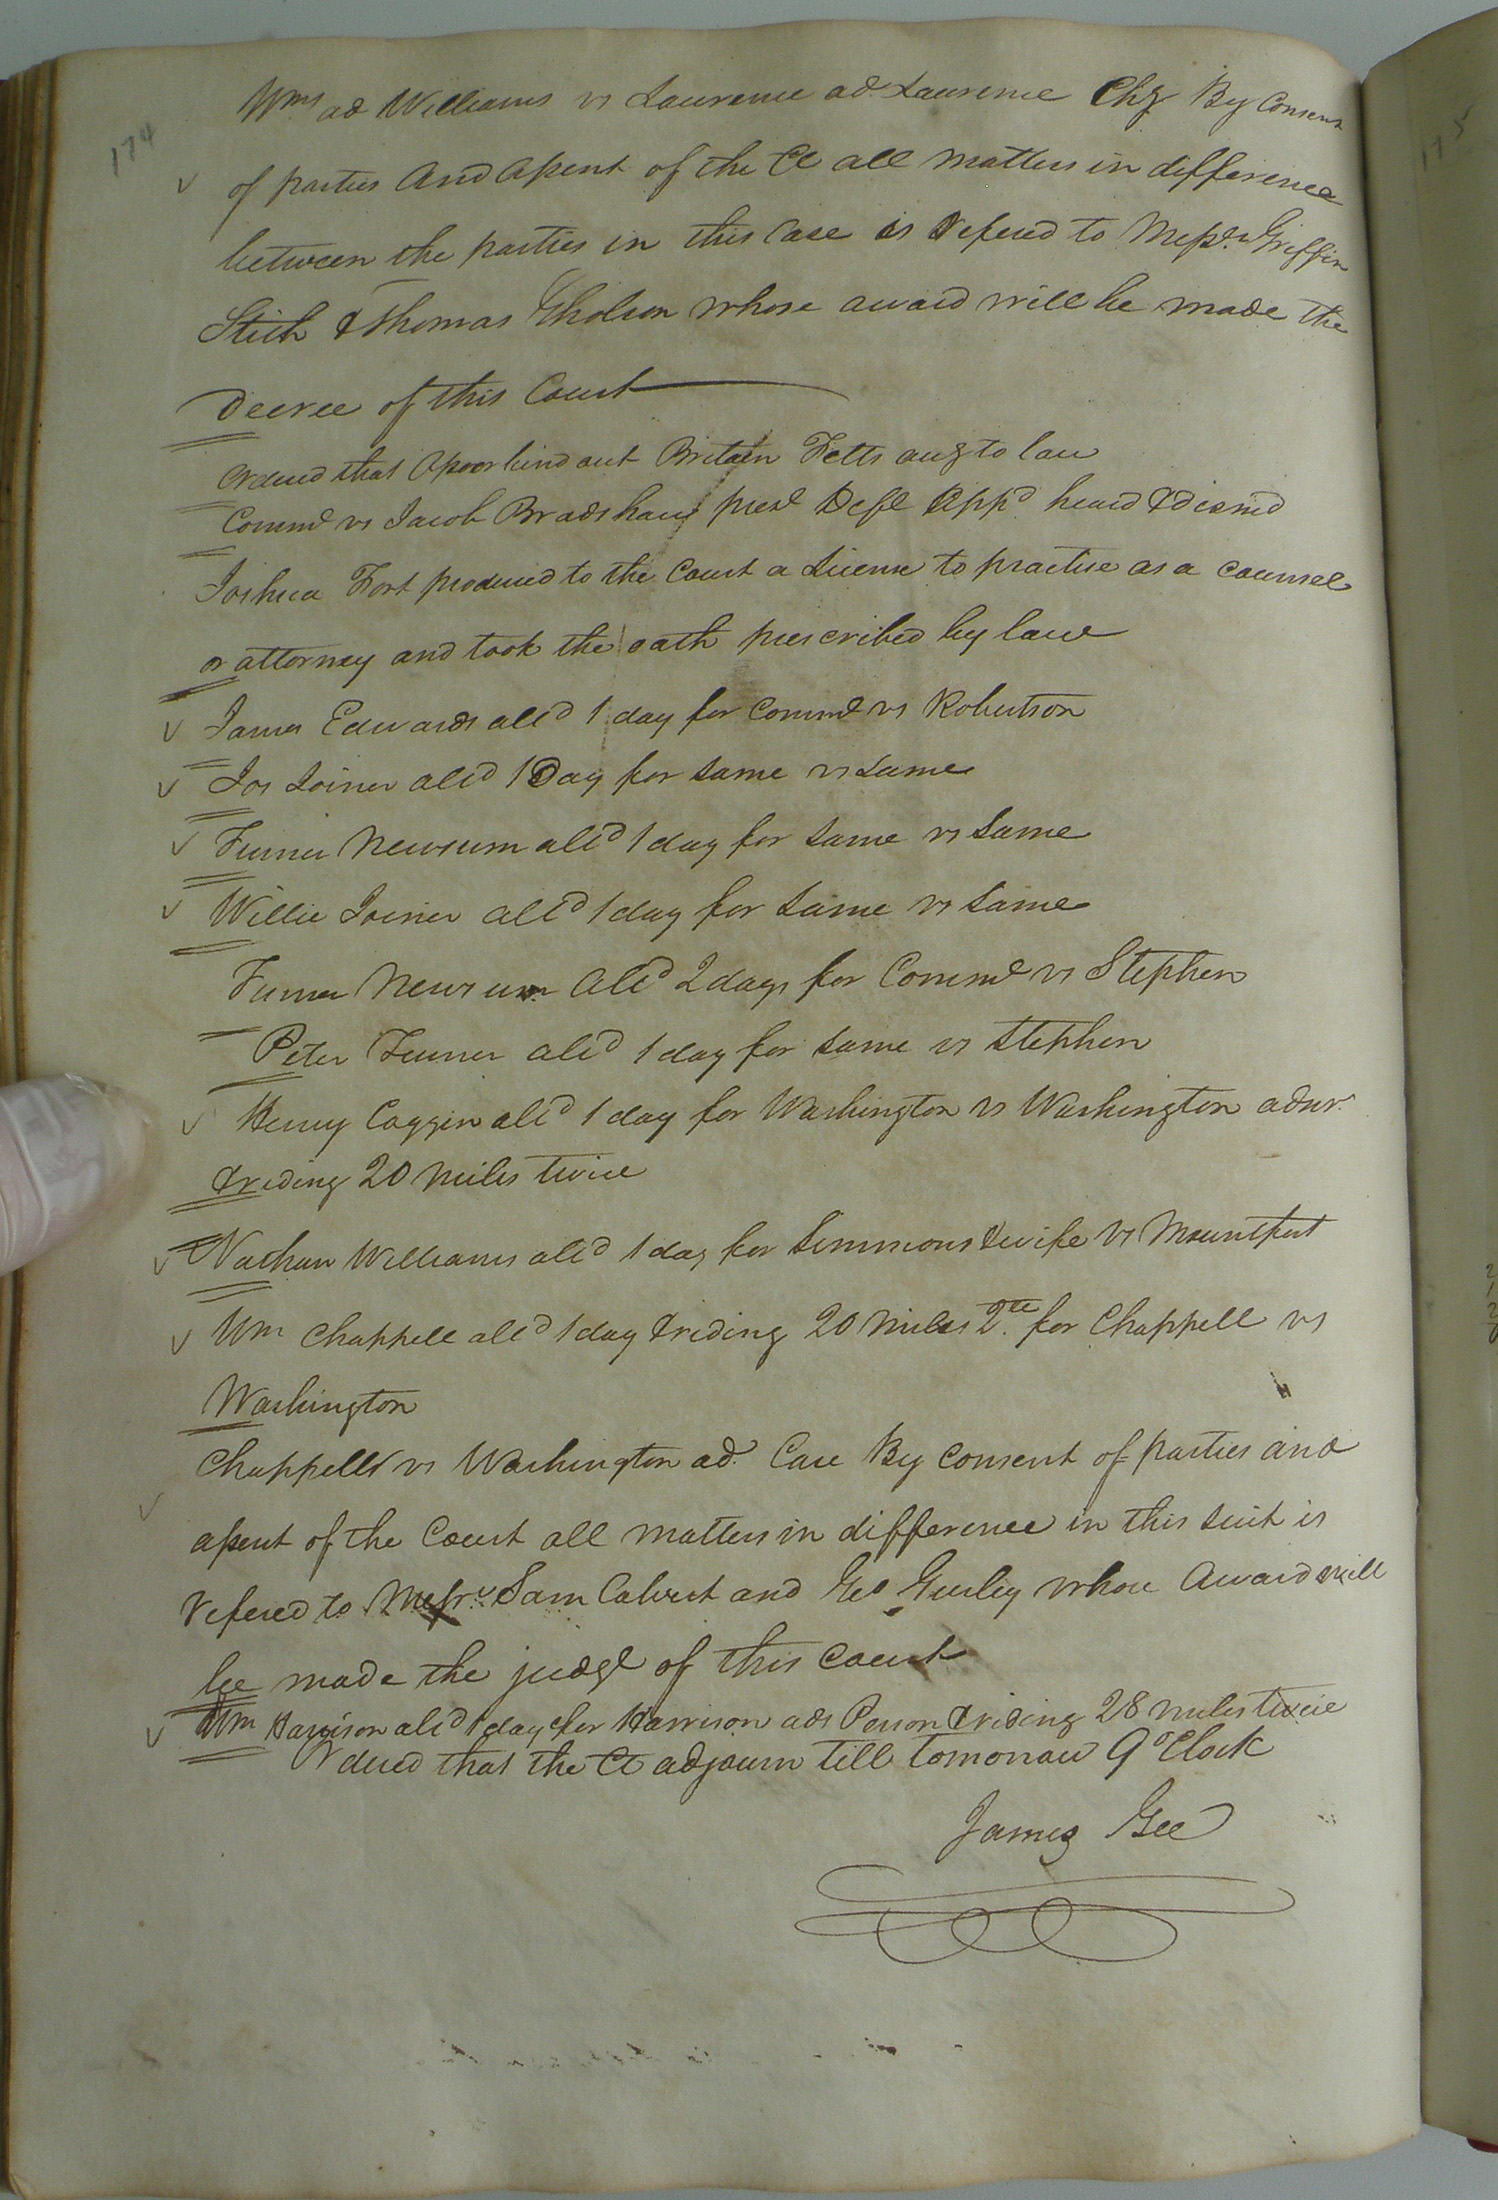 174
Wms ad Williams vs Laurence ad Laurence Chy By Consent
of parties And Assent of the Ct all matters in difference
between the parties in this Case is refered to Messrs Griffin
Stith & Thomas Gholson whose award will be made the
Decree of this Court
Ordered that Overseers poor bind out Britain Fetts aug to law
Commd vs Jacob Bradshaw prest Deft App'd heard & dismd
Joshua Fort produced to the Court a License to practise as a counsel
or attorney and took the oath prescribed by law
James Edwards alld 1 day for Commd vs Robertson
Jos Joiner alld 1 Day for same vs same
Turner Newsum alld 1 day for same vs same
Willie Joiner alld 1 day for same vs same
Turner Newsum alld 2 days for Commd vs Stephen
Peter Turner alld 1 day for same vs Stephen
Henry Coggin alld 1 day for Washington vs Washington admr.
& riding 20 Miles twice
Nathan Williams alld 1 day for Simmons & wife vs Mountfort
Wm Chappell alld 1 day & riding 20 Miles 2ce for Chappell vs
Washington
Chappell vs Washington ad. Case By consent of parties and
assent of the Court all matters in difference in this suit is
refered to Messrs Sam Calvert and Geo Gurley whose Award will
be made the judgt of this Court
Wm Harrison alld 1 day for Harrison ads Person & riding 28 miles twice
Ordered that the Ct adjourn till tomorrow 9 oClock
James Gee
175